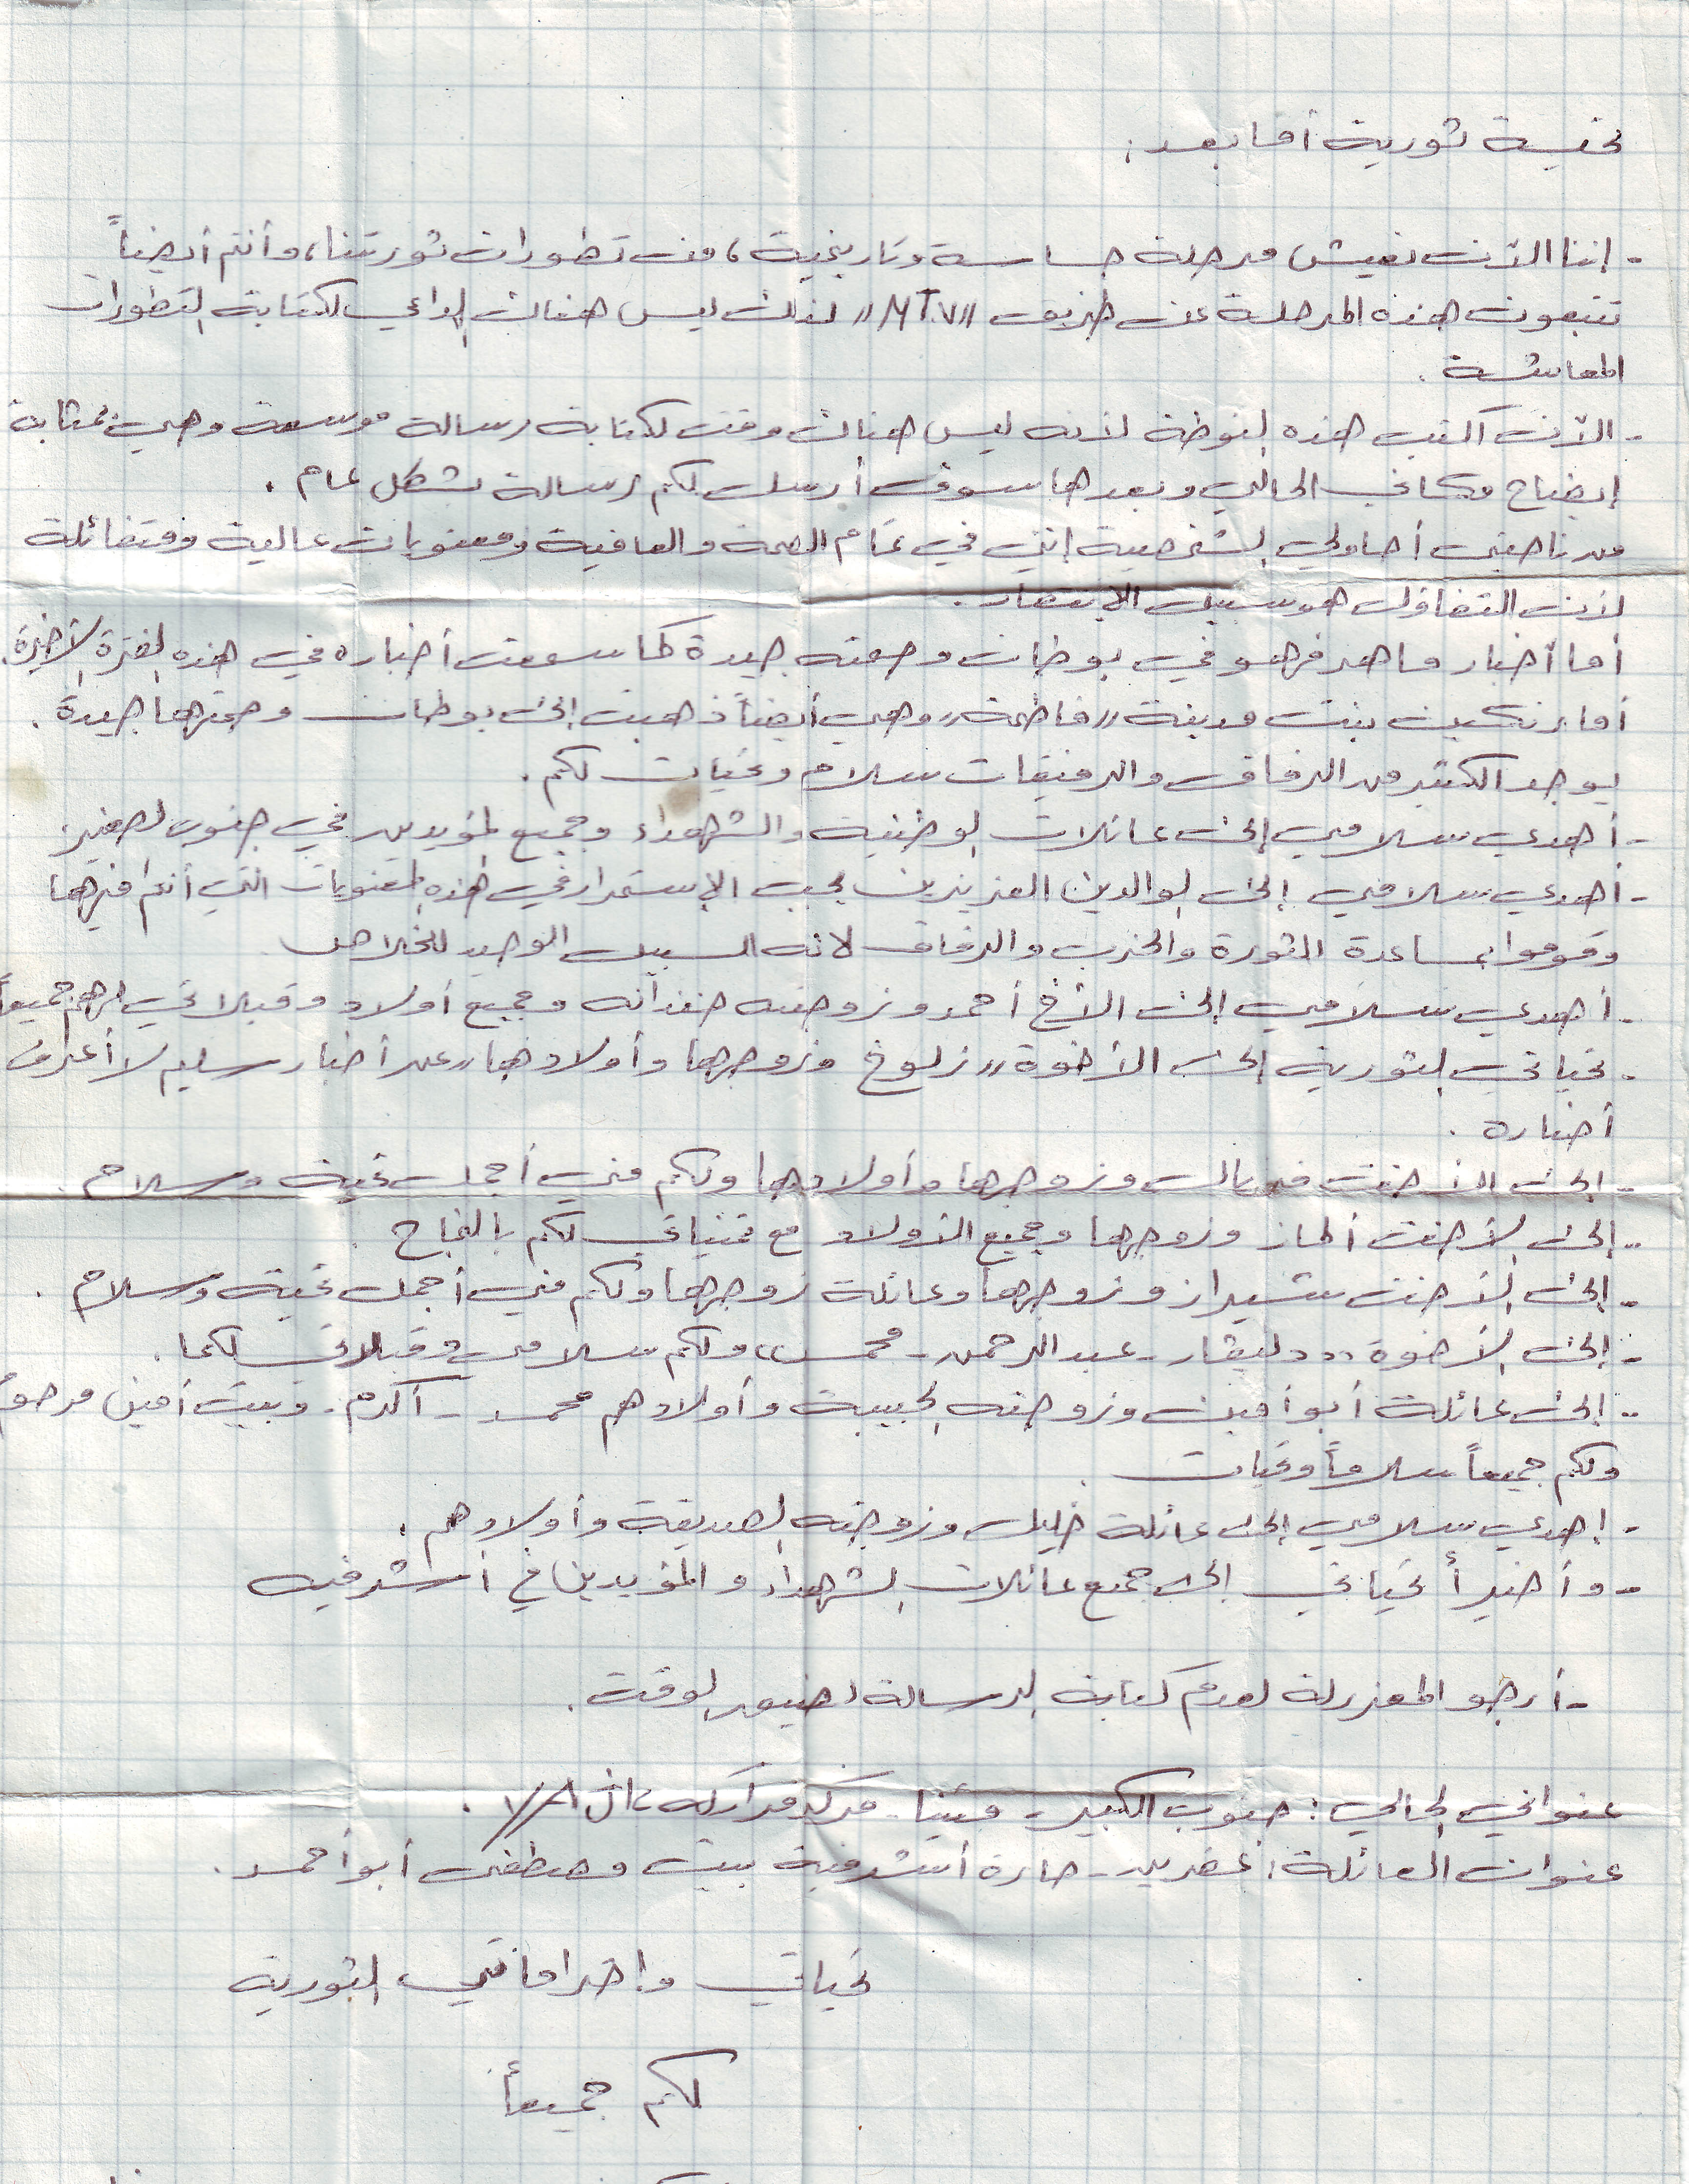 تحية ثورية أما بعد:
- إننا الآن نعيش مرحلة حساسة وتاريخية، من تطورات ثورتنا، وأنتم أيضاً
تتبعون هذه المرحلة عن طريق "MT.V" لذلك ليس هناك الداعي لكتابة التطورات
المعاشة.
- الآن أكتب هذه النوطة لأنه ليس هناك وقت لكتابة رسالة موسعة وهي بمثابة
إيضاح مكاني الحالي وبعدها سوف أرسل لكم رسالة بشكل عام.
من ناحية أحوالي الشخصية إنني في تمام الصحة والعافية ومعنويات عالية ومتفائلة
لأن التفاؤل هو سبيل الإنتصار.
أما أخبار ماهر فهو في بوطان وصحته جيدة كما سمعت أخباره في هذه الفترة الأخيرة.
أما زنكين بنت مدينة "فاطمة" وهي أيضاً ذهبت إلى بوطان وصحتها جيدة.
يوجد الكثير من الرفاق والرفيقات سلام وتحيات لكم.
- أهدي سلامي إلى عائلات الوطنية والشهداء وجميع المؤيدين في جنوب الصغير.
- أهدي سلامي إلى الوالدين العزيزين يجب الإستمرار في هذه المعنويات التي أنتم فيها
وقوموا بمساعدة الثورة والحزب والرفاق لانه السبيل الوحيد للخلاص
- أهدي سلامي إلى الأخ أحمد وزوجته وجميع أولاد وقبلاتي لهم جميعاً
- تحياتي الثورية إلى الأخوة "زلوخ وزوجها وأولادها" عن أخبار سليم لا أعرف
أخباره.
- إلى الأخت فريال وزوجها وأولادها ولكم مني أجمل تحية وسلام.
- إلى الأخت ألماز وزوجها وجميع الأولاد مع تمنياتي لكم بالنجاح.
- إلى الأخت شيراز وزوجها وعائلة زوجها ولكم مني أجمل تحية وسلام.
- إلى الأخوة "دليڤار - عبد الرحمن - محمد" ولكم سلامي وقبلاتي لكما.
- إلى عائلة أبو أمين وزوجته الحبيبة وأولادهم محمد - أكرم. وبيت أمين مرحوم
ولكم جميعاً سلاماً وتحيات
- إهدي سلامي إلى عائلة خليل وزوجته الصديقة وأولادهم.
- وأخيراً تحياتي إلى جميع عائلات الشهداء والمؤيدين في أشرفيه
- أرجو المعذرلة لعدم كتابة الرسالة لضيق الوقت.
عنواني الحالي: جنوب الكبير - مركز
عنوان العائلة: عفرين - حارة أشرفية بيت مصطفى أبو أحمد.
تحياتي واحتراماتي الثورية
لكم جميعاً